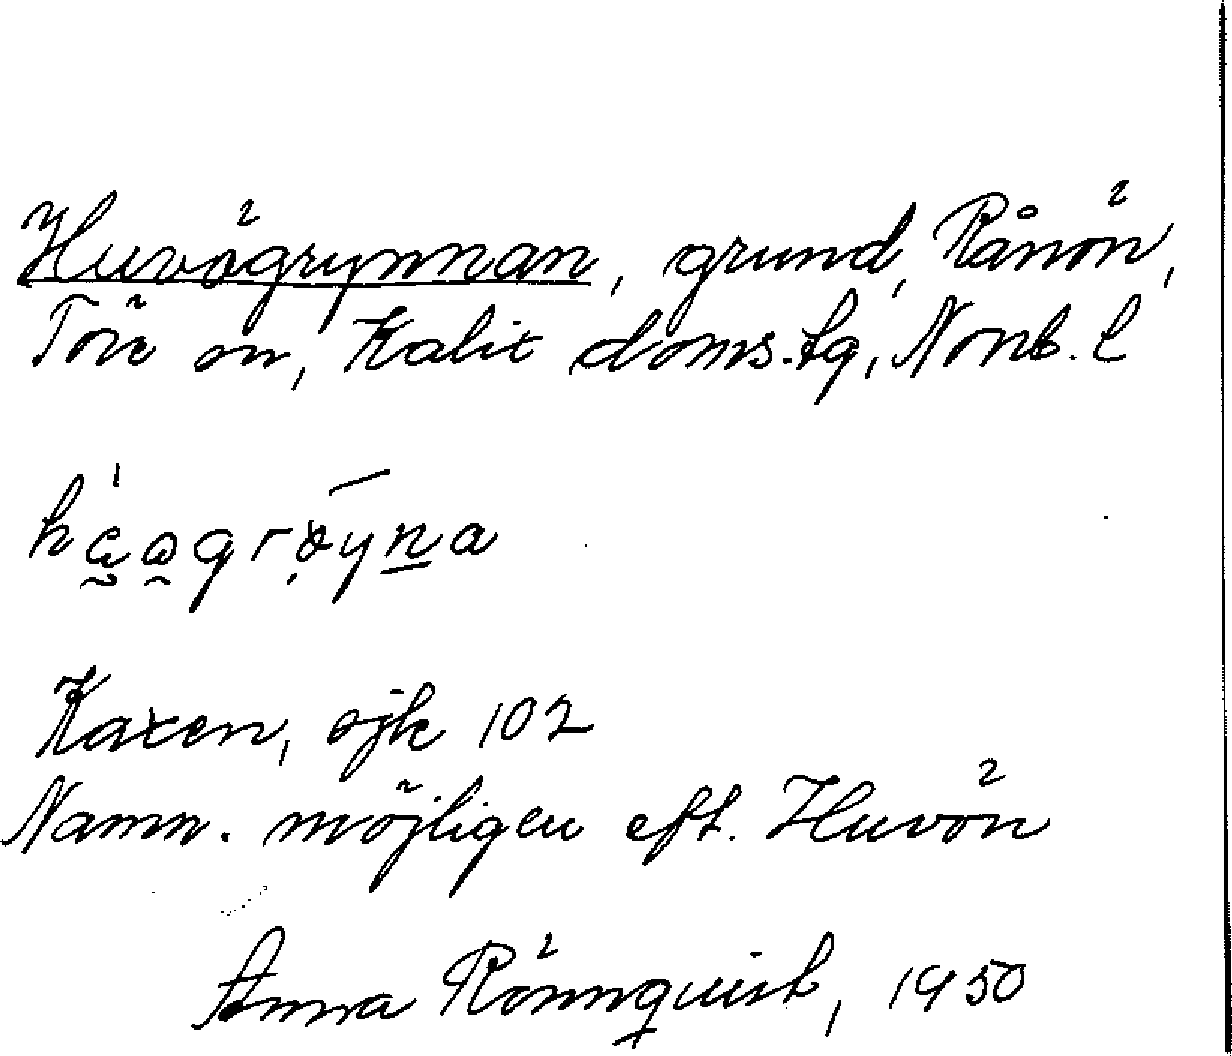 Huvögrynnan, grund, Rånön,
Töre sn, Kalix doms.tg, Norrb. l
Kaxen, sjk 102
Namn. möjligen eft. Huvön
Anna Rönnquist, 1950